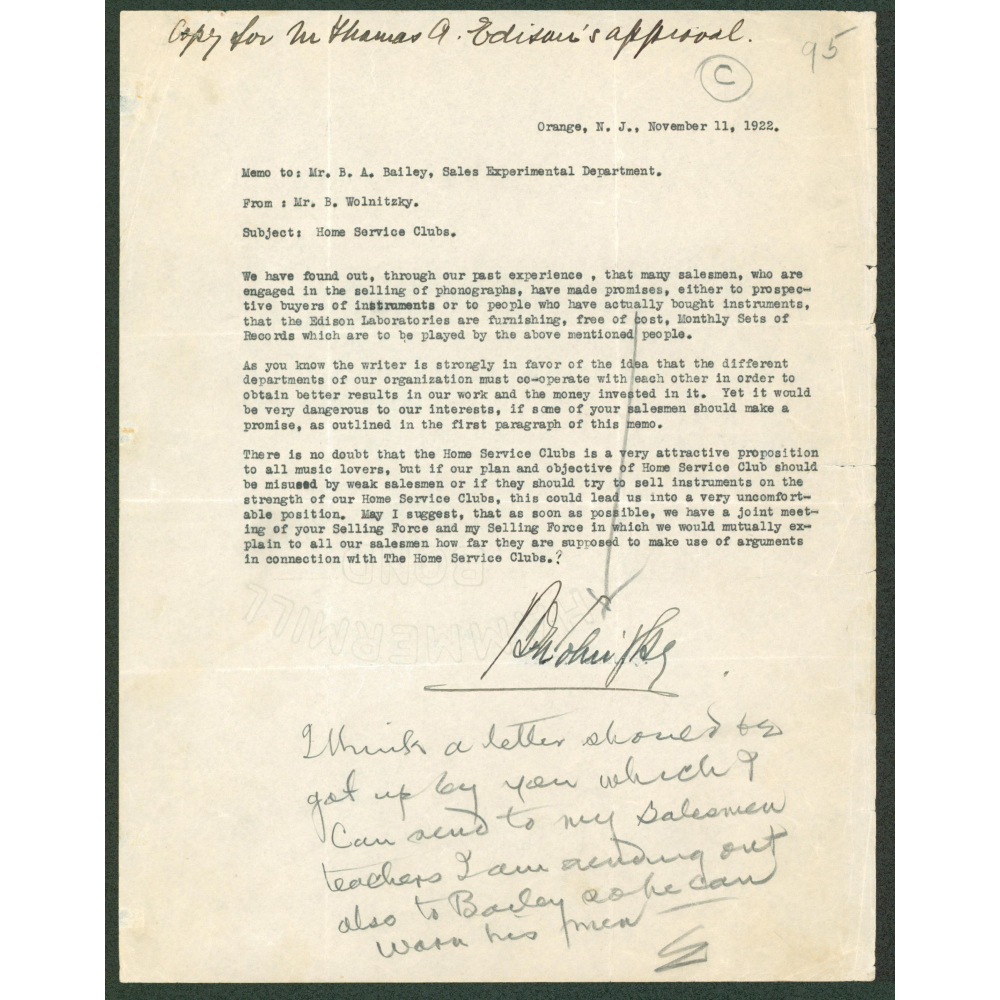 Copy for Mr Thomas A. Edison's approval.
95
C
Orange, N. J., November 11, 1922.
Memo to: Mr. B. A. Bailey, Sales Experimental Department.
From : Mr. B. Wolnitzky.
Subject: Home Service Clubs.
We have found out, through our past experience , that many salesmen, who are
engaged in the selling of phonographs, have made promises, either to prospec-
tive buyers of instruments or to people who have actually bought instruments,
that the Edison Laboratories are furnishing, free of cost, Monthly Sets of
Records which are to be played by the above mentioned people.
As you know the writer is strongly in favor of the idea that the different
departments of our organization must co-operate with each other in order to
obtain better results in our work and the money invested in it. Yet it would
be very dangerous to our interests, if some of your salesmen should make a
promise, as outlined in the first paragraph of this memo.
There is no doubt that the Home Service Clubs is a very attractive proposition
to all music lovers, but if our plan and objective of Home Service Club should
be misused by weak salesmen or if they should try to sell instruments on the
strength of our Home Service Clubs, this could lead us into a very uncomfort-
able position. May I suggest, that as soon as possible, we have a joint meet-
ing of your Selling Force and my Selling Force in which we would mutually ex-
plain to all our salesmen how far they are supposed to make use of arguments
in connection with The Home Service Clubs.?
BOND
HAMMERMILL
BWolnitzky
I think a letter should be
got up by you which I
Can send to my Salesmen
teachers I am sending out
also to Bailey so he can
warn his men
E